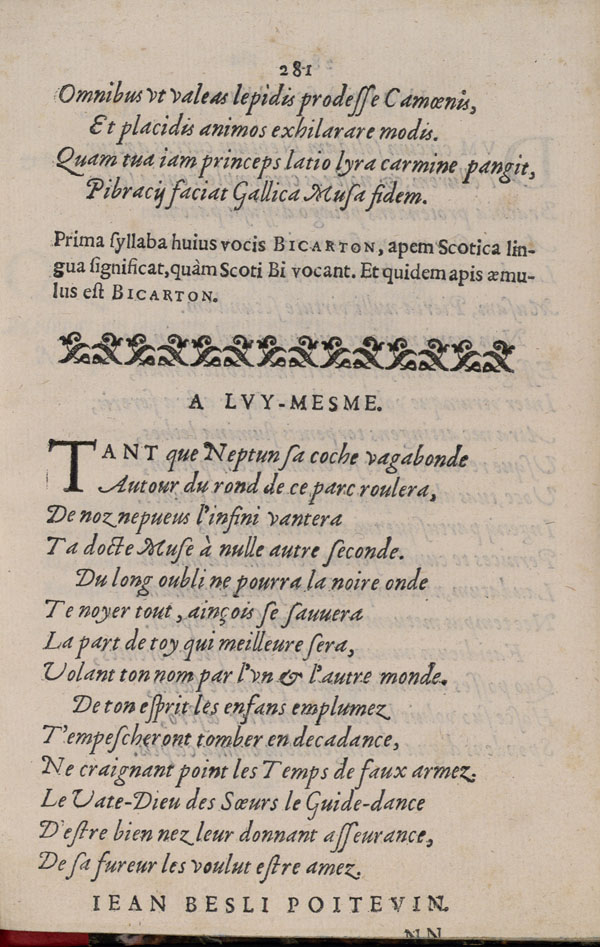 281
Omnibus vt valeas lepidis prodeſſe Camœnis,
Et placidis animos exhilarare modis.
Quam tua iam princeps latio lyra carmine pangit,
Pibracij faciat Gallica Muſa fidem.
Prima ſyllaba huius vocis BICARTON, apem Scotica lin-
gua ſignificat, quàm Scoti Bi vocant. Et quidem apis æmu-
lus eſt BICARTON.
A LVY-MESME.
TANT que Neptun ſa coche vagabonde
Autour du rond de ce parc roulera,
De noz nepueus l'infini vantera
Ta docte Muſe à nulle autre ſeconde.
Du long oubli ne pourra la noire onde
Te noyer tout, ainçois ſe ſauuera
La part de toy qui meilleure ſera,
Volant ton nom par l'vn & l'autre monde.
De ton eſprit les enfans emplumez
T'empeſcheront tomber en decadance,
Ne craignant point les Temps de faux armez.
Le Vate-Dieu des Sœurs le Guide-dance
D'eſtre bien nez leur donnant aſſeurance,
De ſa fureur les voulut eſtre amez.
IEAN BESLI POITEVIN.
NN